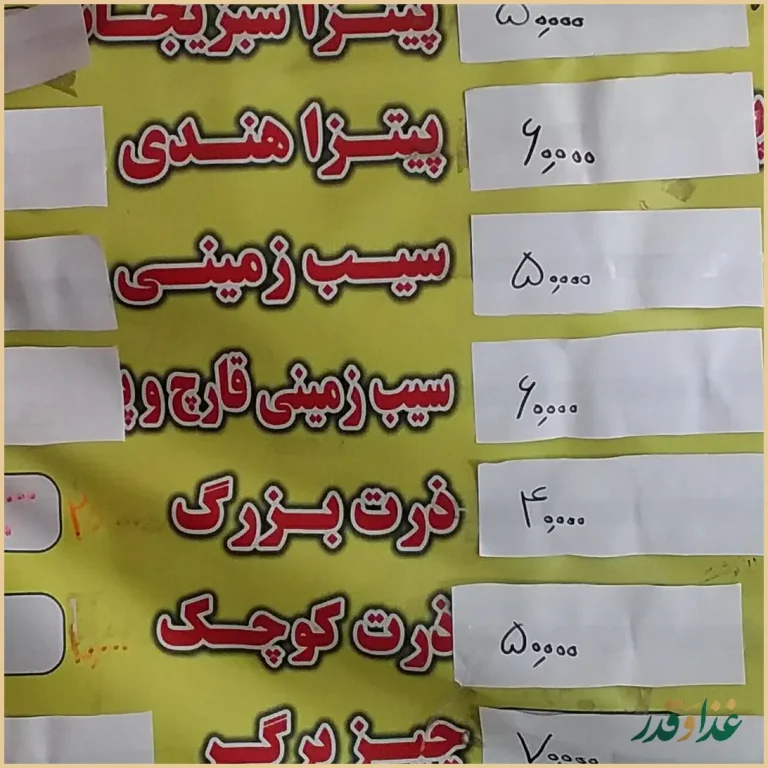 ۵۰,۰۰۰ پیتزا سبزیجات
۶۰,۰۰۰ پیتزا هندی
۵۰,۰۰۰ سیب زمینی
۶۰,۰۰۰ سیب زمینی قارچ و
۴۰,۰۰۰ ذرت بزرگ
۵۰,۰۰۰ ذرت کوچک
۷۰,۰۰۰ چیز برگر
غذا و قدر